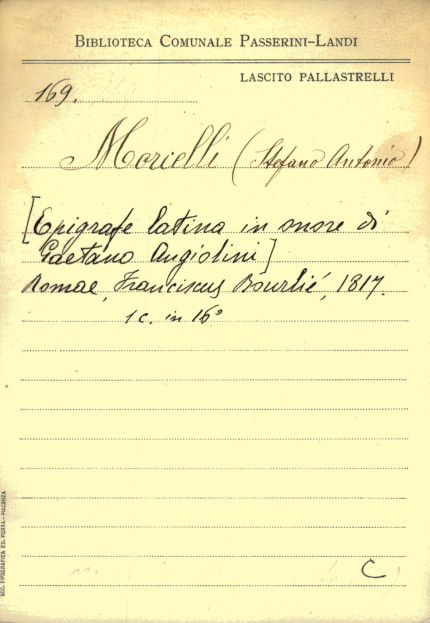 BIBLIOTECA COMUNALE PASSERINI-LANDI
LASCITO PALLASTRELLI
169.
Morcelli (Stefano Antonio)
[Epigrafe latina in onore di
Gaetano Angiolini]
Romae, Franciscus Bourlié, 1817.
1 c. in 16°
C
SOC. TIPOGRAFICA ED. PORTA - PIACENZA